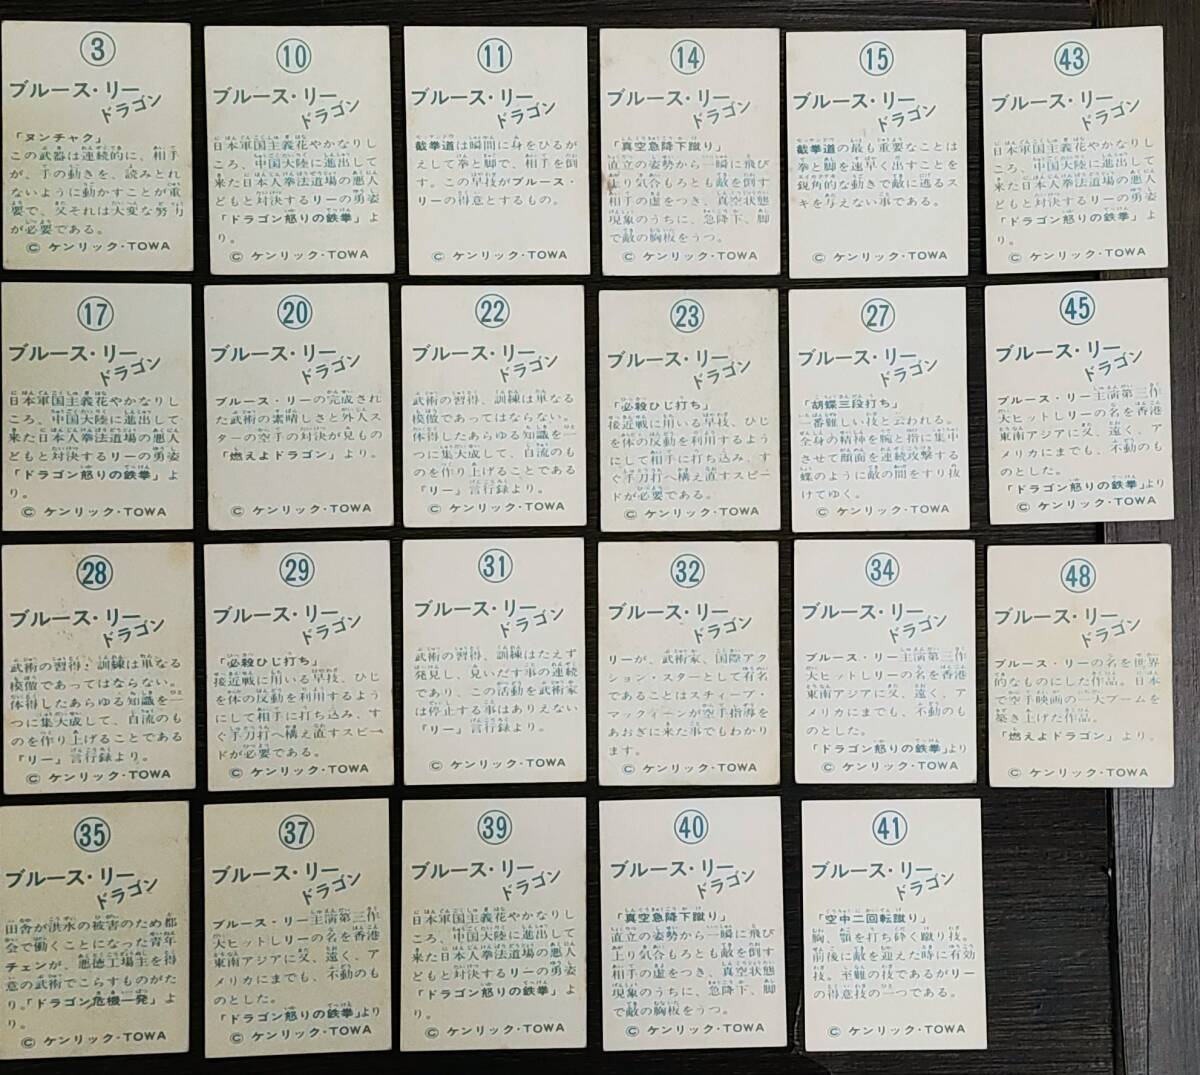 3
ブルース・リー
ドラゴン
「ヌンチャク」
この武器は連続的に、相手
が、手の動きを、読みとれ
ないように動かすことが重
要で、又それは大変な努力
が必要である。
© ケンリック・TOWA
10
ブルース・リー
ドラゴン
日本軍国主義花やかなりし
ころ、中国大陸に進出して
来た日本人拳法道場の悪人
どもと対決するリーの勇姿
「ドラゴン怒りの鉄拳」よ
り。
© ケンリック・TOWA
11
ブルース・リー
ドラゴン
截拳道は瞬間に身をひるが
えして拳と脚で、相手を倒
す。この早技がブルース・
リーの得意とするもの。
© ケンリック・TOWA
14
ブルース・リー
ドラゴン
「真空急降下蹴り」
直立の姿勢から一瞬に飛び
上り気合もろとも敵を倒す
相手の虚をつき、真空状態
現象のうちに、急降下、脚
で敵の胸板をうつ。
© ケンリック・TOWA
15
ブルース・リー
ドラゴン
截拳道の最も重要なことは
拳と脚を速早く出すことを
鋭角的な動きで敵に逃るス
キを与えない事である。
© ケンリック・TOWA
43
ブルース・リー
ドラゴン
日本軍国主義花やかなりし
ころ、中国大陸に進出して
来た日本人拳法道場の悪人
どもと対決するリーの勇姿
「ドラゴン怒りの鉄拳」よ
り。
© ケンリック・TOWA
17
ブルース・リー
ドラゴン
日本軍国主義花やかなりし
ころ、中国大陸に進出して
来た日本人拳法道場の悪人
どもと対決するリーの勇姿
「ドラゴン怒りの鉄拳」よ
り。
© ケンリック・TOWA
20
ブルース・リー
ドラゴン
ブルース・リーの完成され
た武術の素晴しさと外人ス
ターの空手の対決が見もの
「燃えよドラゴン」より。
© ケンリック・TOWA
22
ブルース・リー
ドラゴン
武術の習得、訓練は単なる
模倣であってはならない。
体得したあらゆる知識を一
つに集大成して、自流のも
のを作り上げることである
「リー」言行録より。
© ケンリック・TOWA
23
ブルース・リー
ドラゴン
「必殺ひじ打ち」
接近戦に用いる早技、ひじ
を体の反動を利用するよう
にして相手に打ち込み、す
ぐ手刀打へ構え直すスピー
ドが必要である。
© ケンリック・TOWA
27
ブルース・リー
ドラゴン
「胡蝶三段打ち」
一番難しい技と云われる。
全身の精神を腕と指に集中
させて顔面を連続攻撃する
蝶のように敵の間をすり抜
けてゆく。
© ケンリック・TOWA
45
ブルース・リー
ドラゴン
ブルース・リー主演第三作
大ヒットしリーの名を香港
東南アジアに又、遠く、ア
メリカにまでも、不動のも
のとした。
「ドラゴン怒りの鉄拳」より
© ケンリック・TOWA
28
ブルース・リー
ドラゴン
武術の習得、訓練は単なる
模倣であってはならない。
体得したあらゆる知識を一
つに集大成して、自流のも
のを作り上げることである
「リー」言行録より。
© ケンリック・TOWA
29
ブルース・リー
ドラゴン
「必殺ひじ打ち」
接近戦に用いる早技、ひじ
を体の反動を利用するよう
にして相手に打ち込み、す
ぐ手刀打へ構え直すスピー
ドが必要である。
© ケンリック・TOWA
31
ブルース・リー
ドラゴン
武術の習得、訓練はたえず
発見し、見いだす事の連続
であり、この活動を武術家
は停止する事はありえない
「リー」言行録より。
© ケンリック・TOWA
32
ブルース・リー
ドラゴン
リーが、武術家、国際アク
ション・スターとして有名
であることはスチィーブ・
マックィーンが空手指導を
あおぎに来た事でもわかり
ます。
© ケンリック・TOWA
34
ブルース・リー
ドラゴン
ブルース・リー主演第三作
大ヒットしリーの名を香港
東南アジアに又、遠く、ア
メリカにまでも、不動のも
のとした。
「ドラゴン怒りの鉄拳」より
© ケンリック・TOWA
48
ブルース・リー
ドラゴン
ブルース・リーの名を世界
的なものにした作品。日本
で空手映画の一大ブームを
築き上げた作品。
「燃えよドラゴン」より。
© ケンリック・TOWA
35
ブルース・リー
ドラゴン
田舎が洪水の被害のため都
会で働くことになった青年
チェンが、悪徳工場主を得
意の武術でこらすものがた
り。「ドラゴン危機一発」よ
り。
© ケンリック・TOWA
37
ブルース・リー
ドラゴン
ブルース・リー主演第三作
大ヒットしリーの名を香港
東南アジアに又、遠く、ア
メリカにまでも、不動のも
のとした。
「ドラゴン怒りの鉄拳」より
© ケンリック・TOWA
39
ブルース・リー
ドラゴン
日本軍国主義花やかなりし
ころ、中国大陸に進出して
来た日本人拳法道場の悪人
どもと対決するリーの勇姿
「ドラゴン怒りの鉄拳」よ
り。
© ケンリック・TOWA
40
ブルース・リー
ドラゴン
「真空急降下蹴り」
直立の姿勢から一瞬に飛び
上り気合もろとも敵を倒す
相手の虚をつき、真空状態
現象のうちに、急降下、脚
で敵の胸板をうつ。
© ケンリック・TOWA
41
ブルース・リー
ドラゴン
「空中二回転蹴り」
胸、顎を打ち砕く蹴り技。
前後に敵を迎えた時に有効
技。至難の技であるがリー
の得意技の一つである。
© ケンリック・TOWA